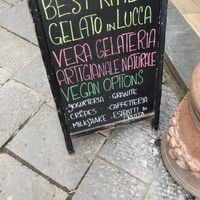 BEST
GELATO IN LUCCA
VERA GELATERIA
ARTIGIANALE NATURALE
VEGAN OPTIONS
YOGURTERIA · GRANITE
CRÊPES · CAFFETTERIA
MILKSHAKE · ESTRATTI DI
FRUTTA